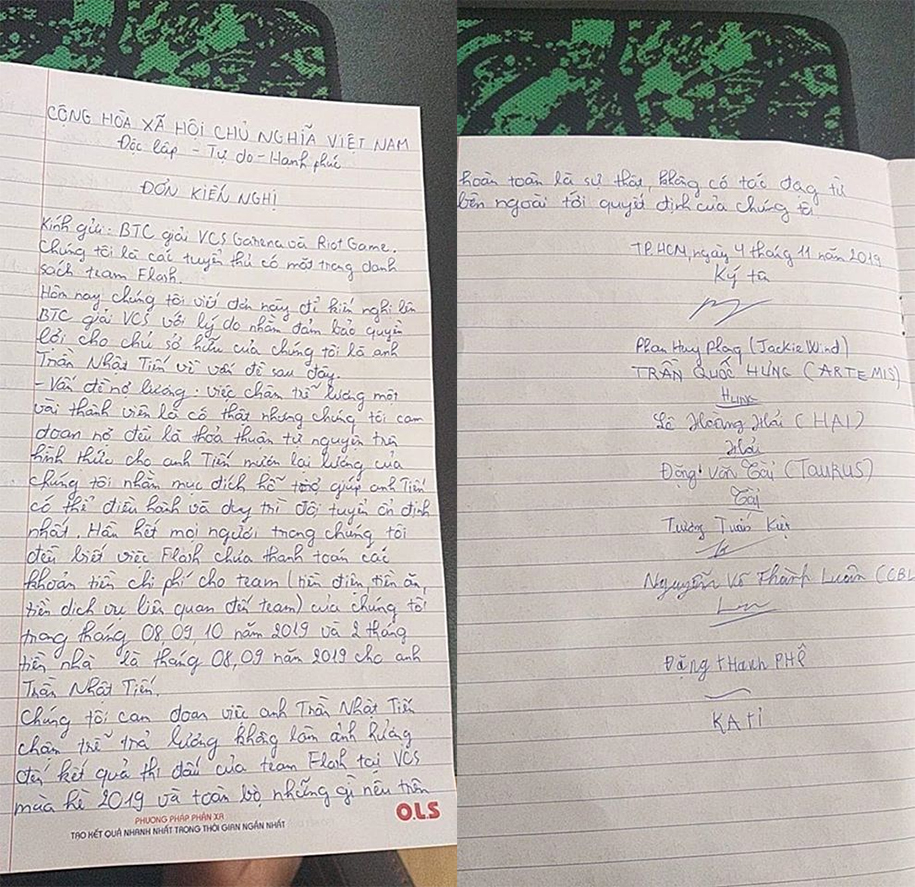 CỘNG HÒA XÃ HỘI CHỦ NGHĨA VIỆT NAM
Độc lập - Tự do - Hạnh phúc
ĐƠN KIẾN NGHỊ
Kính gửi: BTC giải VCS Garena và Riot Game.
Chúng tôi là các tuyển thủ có mặt trong danh
sách team Flash.
Hôm nay chúng tôi viết đơn này để kiến nghị lên
BTC giải VCS với lý do nhằm đảm bảo quyền
lợi cho chủ sở hữu của chúng tôi là anh
Trần Nhật Tiến vì vấn đề sau đây.
- Vấn đề nợ lương: việc chậm trễ lương một
vài thành viên là có thật nhưng chúng tôi cam
đoan nó đều là thỏa thuận tự nguyện trên
hình thức cho anh Tiến mượn lại lương của
chúng tôi nhằm mục đích hỗ trợ giúp anh Tiến
có thể điều hành và duy trì đội tuyển ổn định
nhất. Hầu hết mọi người trong chúng tôi
đều biết việc Flash chưa thanh toán các
khoản tiền chi phí cho team (tiền điện, tiền ăn,
tiền dịch vụ liên quan đến team) của chúng tôi
trong tháng 08, 09, 10 năm 2019 và 2 tháng
tiền nhà là tháng 08, 09 năm 2019 cho anh
Trần Nhật Tiến.
Chúng tôi cam đoan việc anh Trần Nhật Tiến
chậm trễ trả lương không làm ảnh hưởng
đến kết quả thi đấu của team Flash tại VCS
mùa hè 2019 và toàn bộ những gì nêu trên
PHƯƠNG PHÁP PHẢN XẠ
TẠO KẾT QUẢ NHANH NHẤT TRONG THỜI GIAN NGẮN NHẤT
O.L.S
hoàn toàn là sự thật, không có tác động từ
bên ngoài tới quyết định của chúng tôi
TP.HCM, ngày 4 tháng 11 năm 2019
Ký tên
Phan Huy Phong (Jackie Wind)
TRẦN QUỐC HƯNG (ARTEMIS)
HƯNG
Lê Hoàng Hải (HAI)
Hải
Đặng Văn Tài (TAURUS)
Tài
Tướng Tuấn Kiệt
Nguyễn Võ Thành Luân (CBL
Đặng thanh PHÊ
KATI